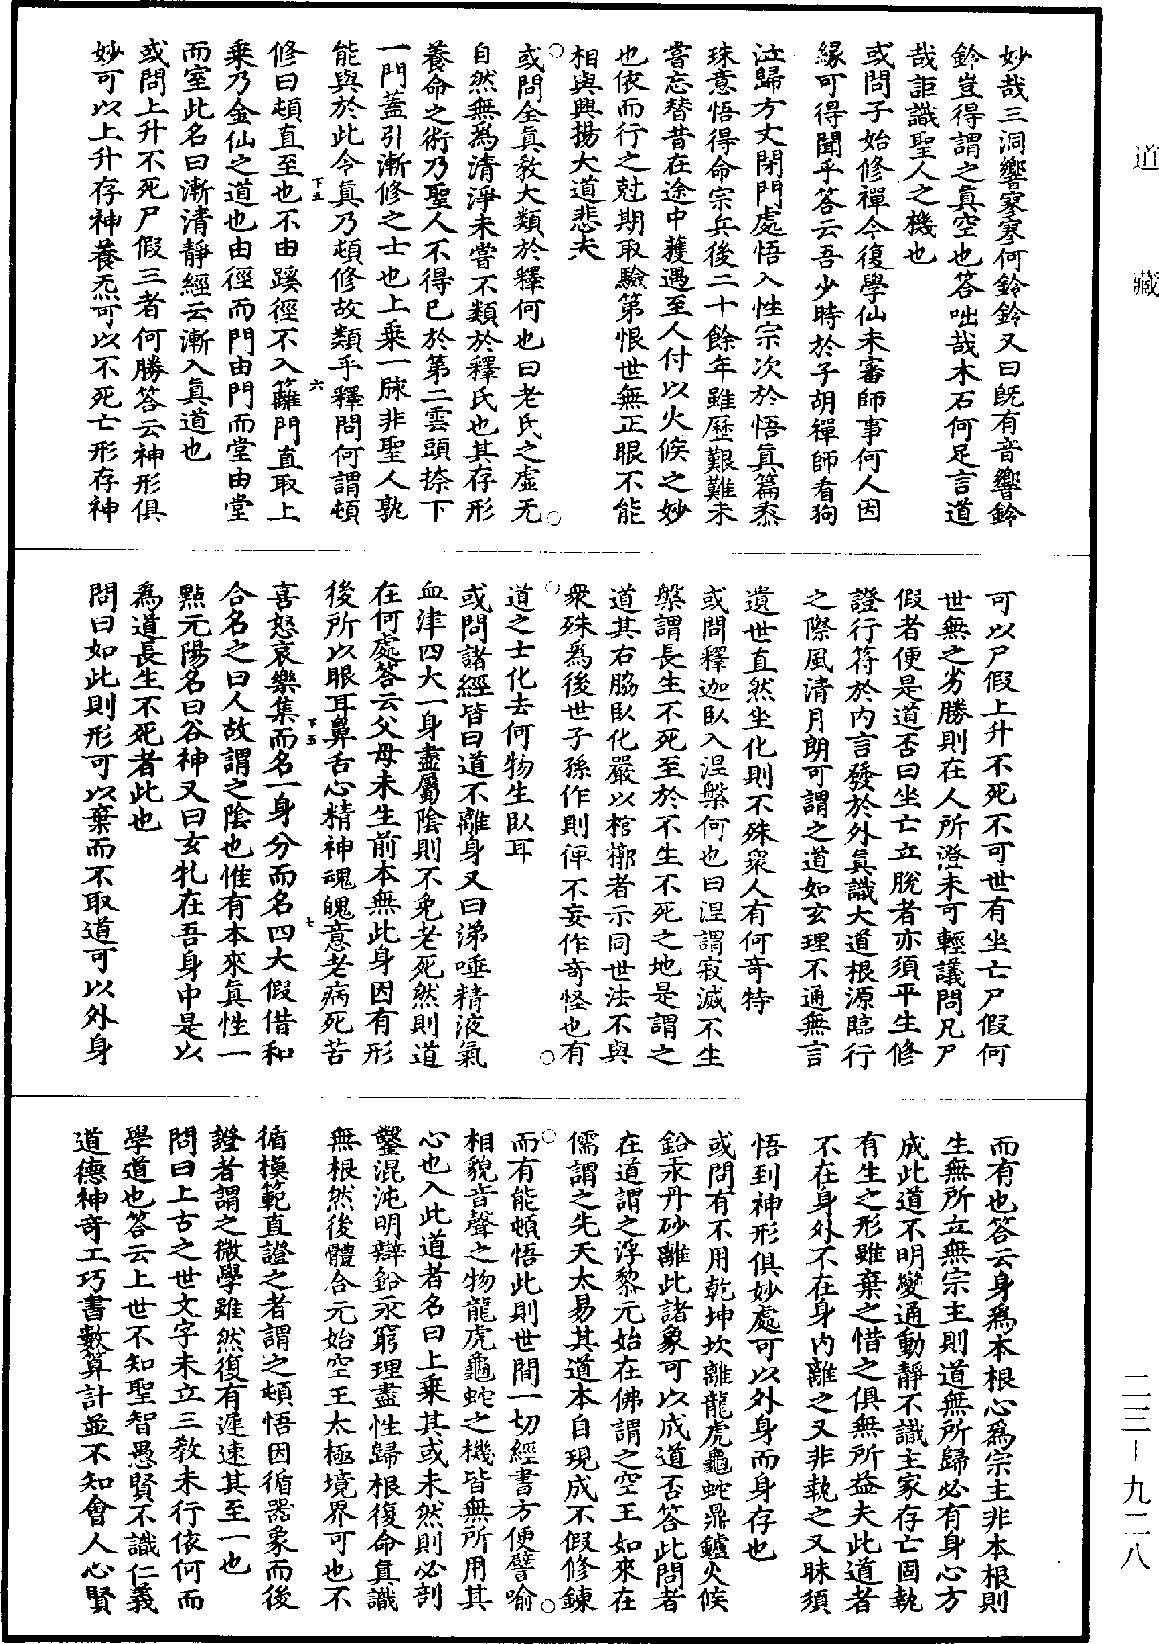 道藏
二三－九二八
妙哉三洞響寥寥何鈴鈴又曰既有音響鈴
鈴豈得謂之真空也答咄哉木石何足言道
哉詎識聖人之機也
或問子始修禪今復學仙未審師事何人因
緣可得聞乎答云吾少時於子胡禪師看狗
泣歸方丈閉門處悟入性宗次於悟真篇黍
珠意悟得命宗兵後二十餘年雖歷艱難未
嘗忘替昔在途中獲遇至人付以火候之妙
也依而行之尅期取驗第恨世無正眼不能
相與興揚大道悲夫
或問全真教大類於釋何也曰老氏之虛无
自然無為清淨未嘗不類於釋氏也其存形
養命之術乃聖人不得已於第二雲頭捺下
一門蓋引漸修之士也上乘一脉非聖人孰
能與於此令真乃頓修故類乎釋問何謂頓
下五
六
修曰頓直至也不由蹊徑不入籬門直取上
乘乃金仙之道也由徑而門由門而堂由堂
而室此名曰漸清靜經云漸入真道也
或問上升不死尸假三者何勝答云神形俱
妙可以上升存神養炁可以不死亡形存神
可以尸假上升不死不可世有坐亡尸假何
世無之劣勝則在人所澄未可輕議問凡尸
假者便是道否曰坐亡立脫者亦須平生修
證行符於內言發於外真識大道根源臨行
之際風清月朗可謂之道如玄理不通無言
遺世直然坐化則不殊衆人有何奇特
或問釋迦臥入涅槃何也曰涅謂寂滅不生
槃謂長生不死至於不生不死之地是謂之
道其右脇臥化嚴以棺槨者示同世法不與
衆殊為後世子孫作則俾不妄作奇怪也有
道之士化去何物生臥耳
或問諸經皆曰道不離身又曰涕唾精液氣
血津四大一身盡屬陰則不免老死然則道
在何處答云父母未生前本無此身因有形
後所以眼耳鼻舌心精神魂魄意老病死苦
下五
七
喜怒哀樂集而名一身分而名四大假借和
合名之曰人故謂之陰也惟有本來真性一
點元陽名曰谷神又曰玄牝在吾身中是以
為道長生不死者此也
問曰如此則形可以棄而不取道可以外身
而有也答云身為本根心為宗主非本根則
生無所立無宗主則道無所歸必有身心方
成此道不明變通動靜不識主家存亡固執
有生之形雖棄之惜之俱無所益夫此道者
不在身外不在身內離之又非執之又昧須
悟到神形俱妙處可以外身而身存也
或問有不用乾坤坎離龍虎龜蛇鼎鑪火候
鉛汞丹砂離此諸象可以成道否答此問者
在道謂之浮黎元始在佛謂之空王如來在
儒謂之先天太易其道本自現成不假修鍊
而有能頓悟此則世間一切經書方便譬喻
相貌音聲之物龍虎龜蛇之機皆無所用其
心也入此道者名曰上乘其或未然則必剖
鑿混沌明辯鉛汞窮理盡性歸根復命真識
無根然後體合元始空王太極境界可也不
循模範直證之者謂之頓悟因循器象而後
證者謂之漸學雖然復有遲速其至一也
問曰上古之世文字未立三教未行依何而
學道也答云上世不知聖智愚賢不識仁義
道德神奇工巧書數算計並不知會人心賢